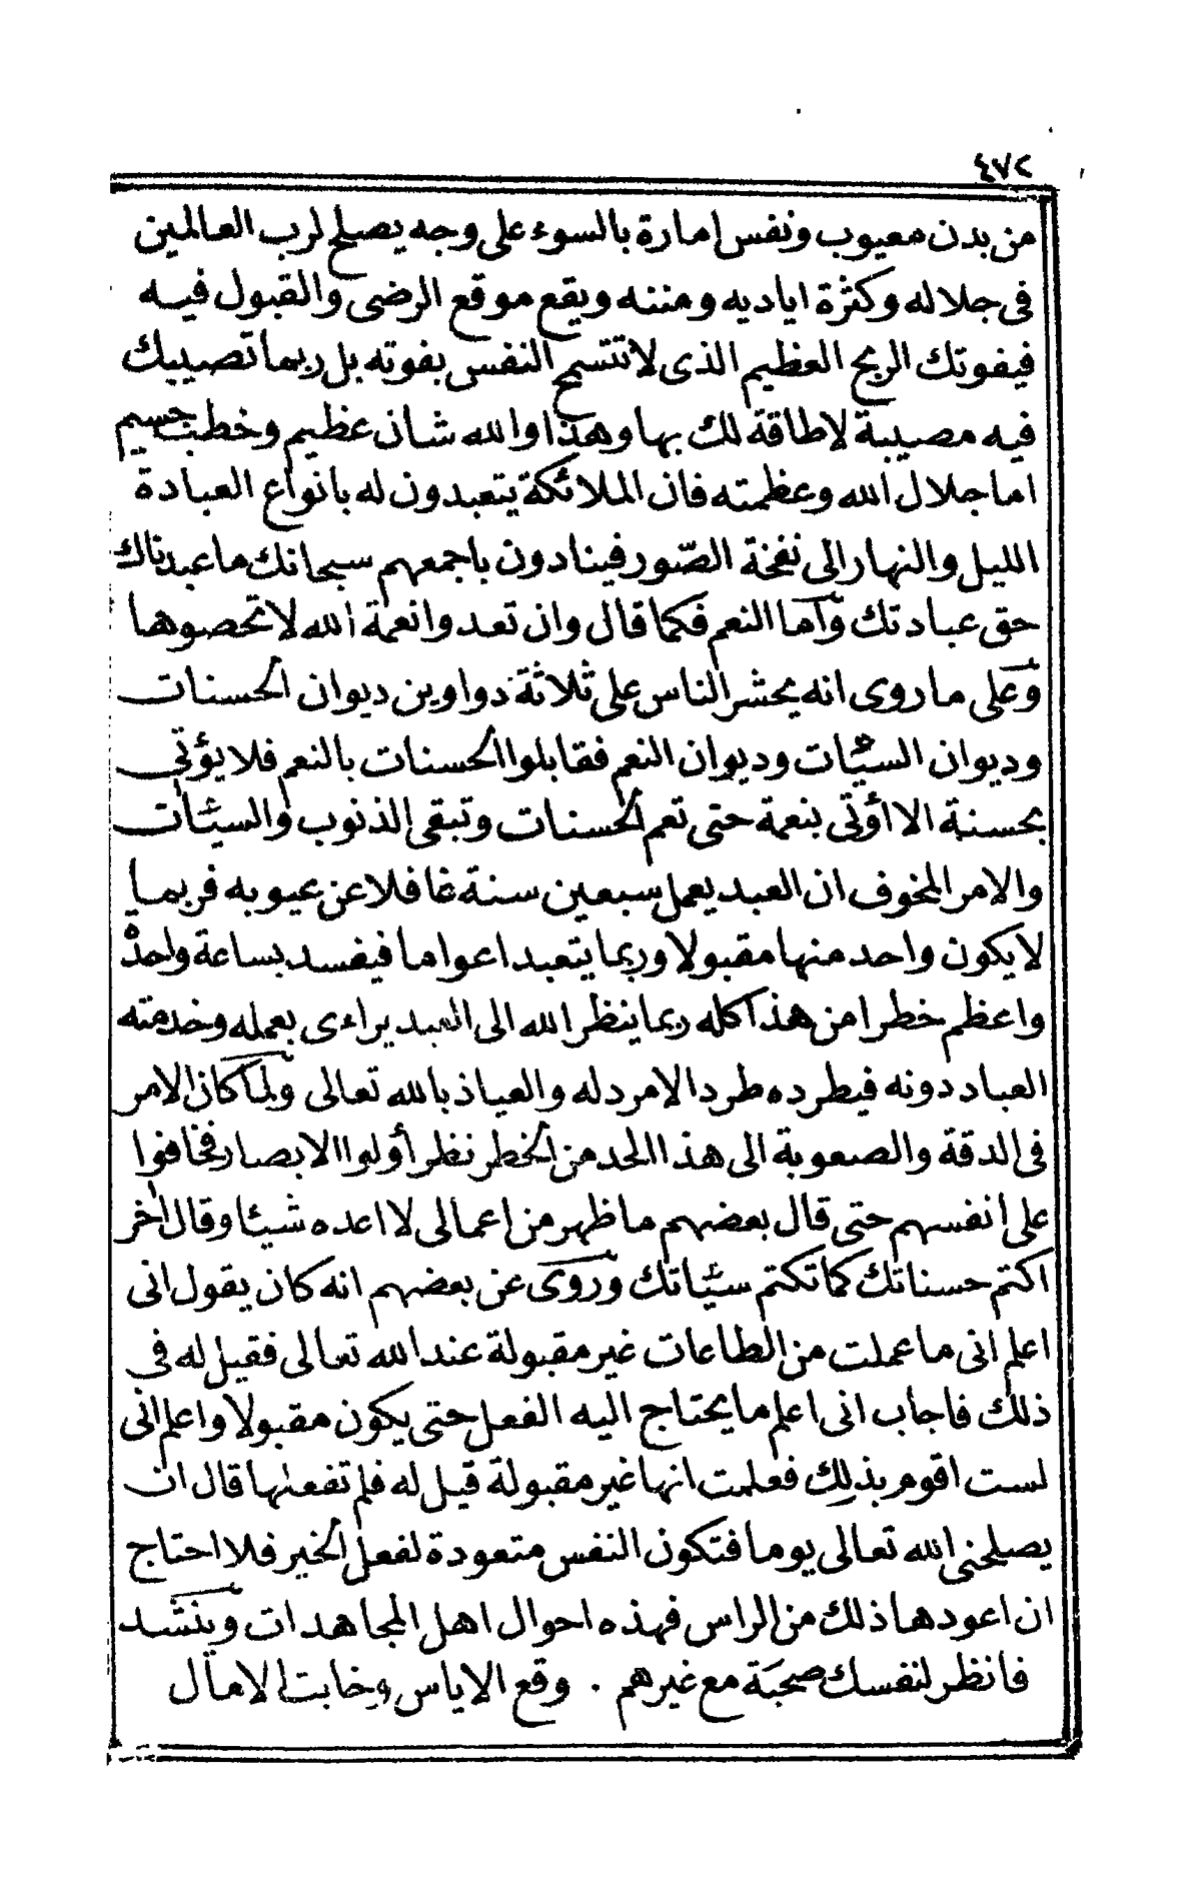 ٤٧٢
من بدن معيوب ونفس امارة بالسوء على وجه يصلح لرب العالمين
فى جلاله وكثرة اياديه ومننه ويقع موقع الرضى والقبول فيه
فيفوتك الربح العظيم الذى لا تتسمح النفس بفوته بل ربما تصيبك
فيه مصيبة لا طاقة لك بها وهذا والله شان عظيم وخطب جسيم
اما جلال الله وعظمته فان الملائكة يتعبدون له بانواع العبادة
الليل والنهار الى نفخة الصّور فينادون باجمعهم سبحانك ما عبدناك
حق عبادتك وآما النعم فكما قال وان تعدوا نعمة الله لا تحصوها
وعلى ما روى انه يحشر الناس على ثلاثة دواوين ديوان الحسنات
وديوان السيّئات وديوان النعم فقابلوا الحسنات بالنعم فلا يؤتى
بحسنة الا أوتى بنعمة حتى تعم الحسنات وتبقى الذنوب والسيئات
والامر المخوف ان العبد يعمل سبعين سنة غافلا عن عيوبه فربما
لا يكون واحد منها مقبولا وربما يتعبد اعواما فيفسد بساعة واحدة
واعظم خطرا من هذا كله ربما ينظر الله الى العبد يراءى بعمله وخدمته
العباد دونه فيطرده طردا لا مرد له والعياذ بالله تعالى ولما كان الامر
فى الدقة والصعوبة الى هذا الحد من الخطر نظر أولوا الابصار فخافوا
على انفسهم حتى قال بعضهم ما ظهر من اعمالى لا اعده شيئا وقال اخر
اكتم حسناتك كما تكتم سيئاتك وروى عن بعضهم انه كان يقول انى
اعلم انى ما عملت من الطاعات غير مقبولة عند الله تعالى فقيل له فى
ذلك فاجاب انى اعلم ما يحتاج اليه الفعل حتى يكون مقبولا واعلم انى
لست اقوم بذلك فعلمت انها غير مقبولة قيل له فلم تفعلها قال ان
يصلحنى الله تعالى يوما فتكون النفس متعودة لفعل الخير فلا احتاج
ان اعودها ذلك من الراس فهذه احوال اهل المجاهدات وينشد
فانظر لنفسك صحبَة مع غيرهم . وقع الاياس وخابت الامال